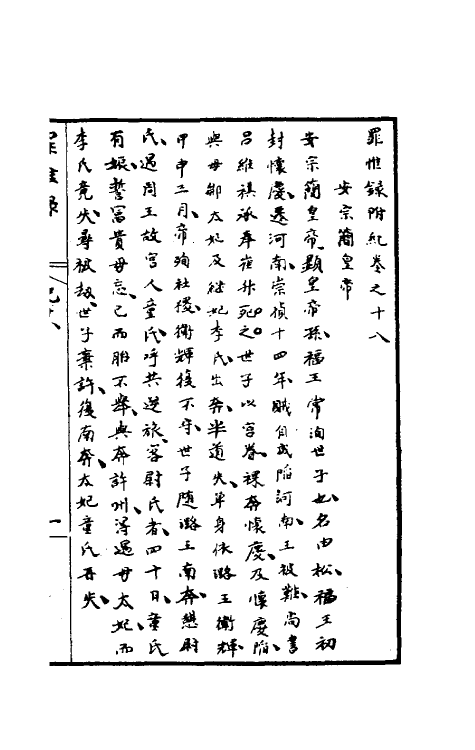 罪惟錄附紀卷之十八
安宗簡皇帝
安宗簡皇帝顯皇帝孫福王常洵世子也名由松福王初
封懷慶遷河南崇禎十四年賊自成陷河南王被難尚書
呂維祺承奉崔升死之世子以宮眷裸奔懷慶及懷慶陷
與母鄒太妃及繼妃李氏出奔半道失單身依潞王衛輝
甲申三月帝殉社稷衛輝復不守世子隨潞王南奔憩尉
氏遇周王故宮人童氏呼共逆旅客尉氏者四十日童氏
有娠誓富貴毋忘已而胎不舉與奔許州得遇母太妃而
李氏竟失尋被劫世子棄許復南奔太妃童氏再失
罪惟錄
紀十八
一